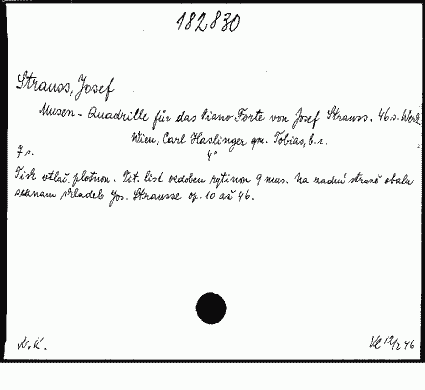 182830
Strauss, Josef
Musen - Quadrille für das Piano Forte von Josef Strauss. 46.s. Werk
Wien, Carl Haslinger qm. Tobias, b.r.
4°
7 s.
Tisk otlač. plotnou. Tit. list ozdoben rytinou 9 mus. Na zadní straně obalu
seznam skladeb Jos. Strausse op. 10 až 46.
N.K.
12/2 46